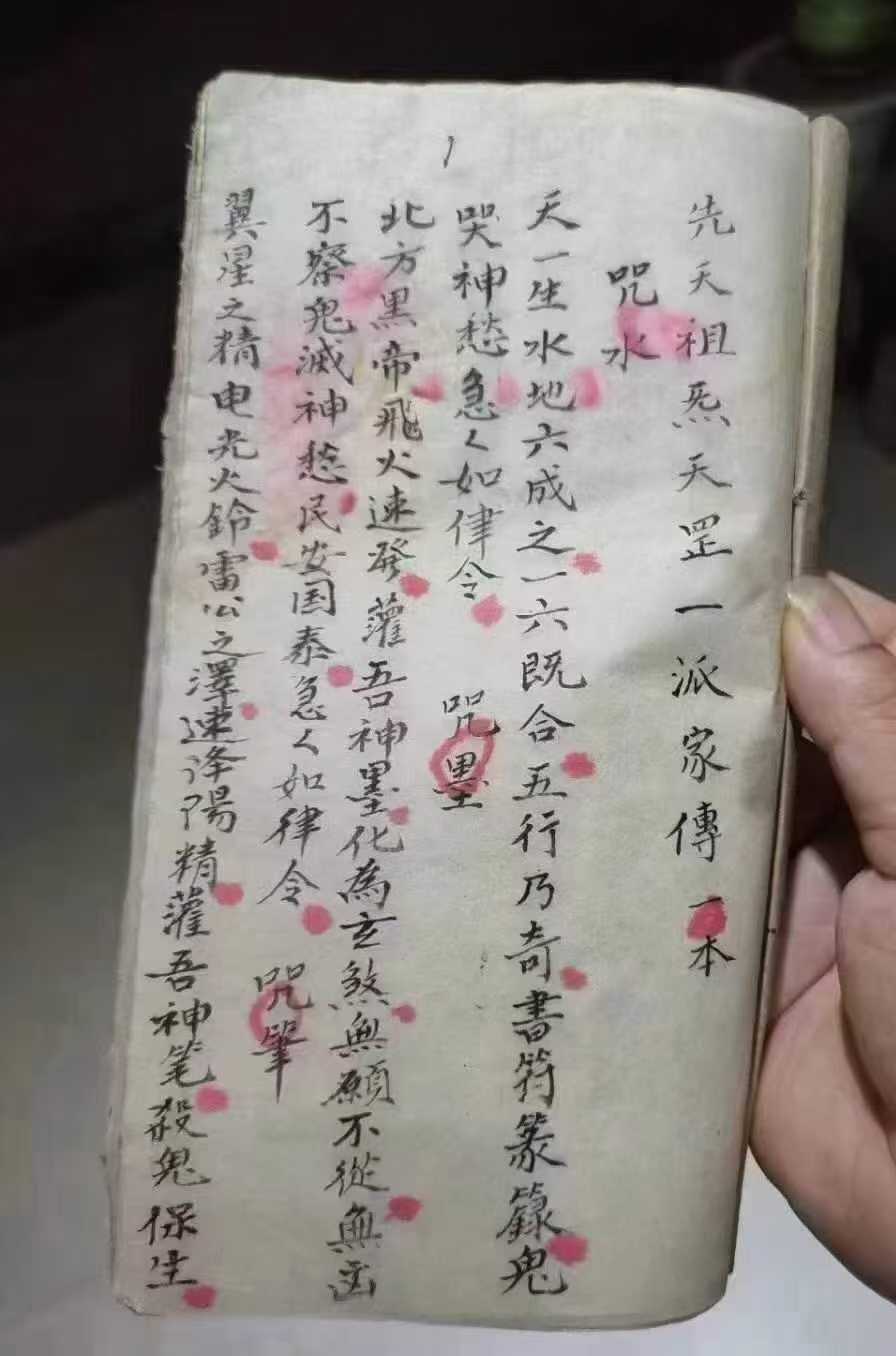 1
先天祖炁天罡一派家傳一本
咒水
天一生水地六成之一六既合五行乃奇書符篆籙鬼
哭神愁急々如律令 咒墨
北方黑帝飛火速發灌吾神墨化為玄煞無願不從無凶
不察鬼滅神愁民安国泰急々如律令 咒筆
翼星之精电光火鈴雷公之澤速泽陽精灌吾神笔殺鬼保生